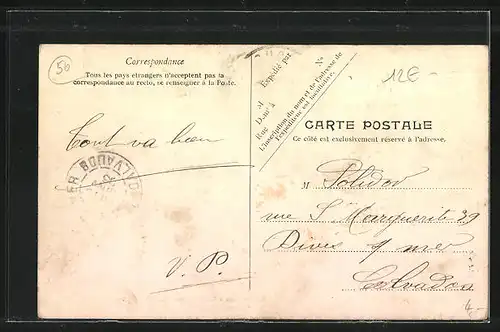 50
Correspondance
Tous les pays étrangers n'acceptent pas la
correspondance au recto, se renseigner à la Poste.
Tout va bien
V. P.
Expédié par
N°
Rue
L'inscription du nom et de l'adresse de
l'expéditeur est facultative.
12E-
CARTE POSTALE
Ce côté est exclusivement réservé à l'adresse.
M Polidor
rue S Marguerite 29
Dives s/ mer
Calvados